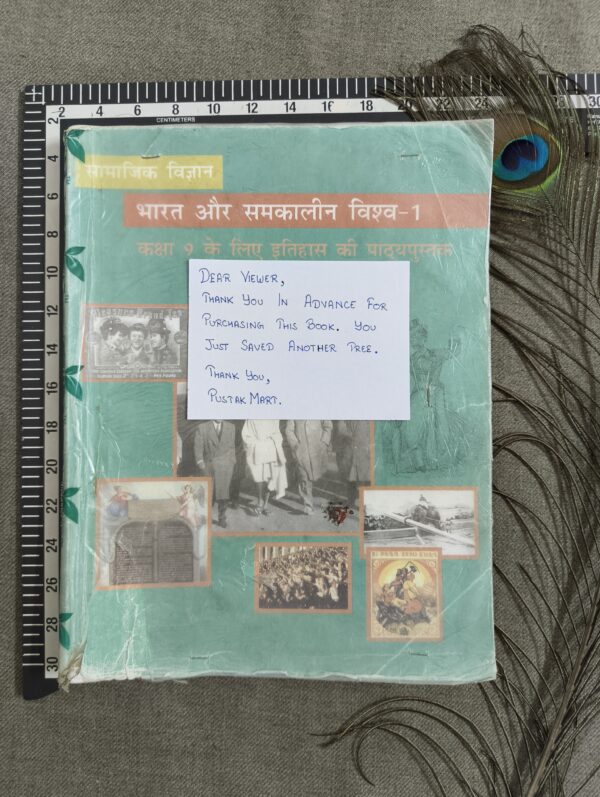 2 4 6 8 10 12 14 16 18 20 22 24 30
CENTIMETERS
2
4
6
8
10
12
14
16
18
20
22
24
26
28
30
सामाजिक विज्ञान
भारत और समकालीन विश्व-1
कक्षा 9 के लिए इतिहास की पाठ्यपुस्तक
DEAR VIEWER,
THANK YOU IN ADVANCE FOR
PURCHASING THIS BOOK. YOU
JUST SAVED ANOTHER TREE.
THANK YOU,
PUSTAK MART.